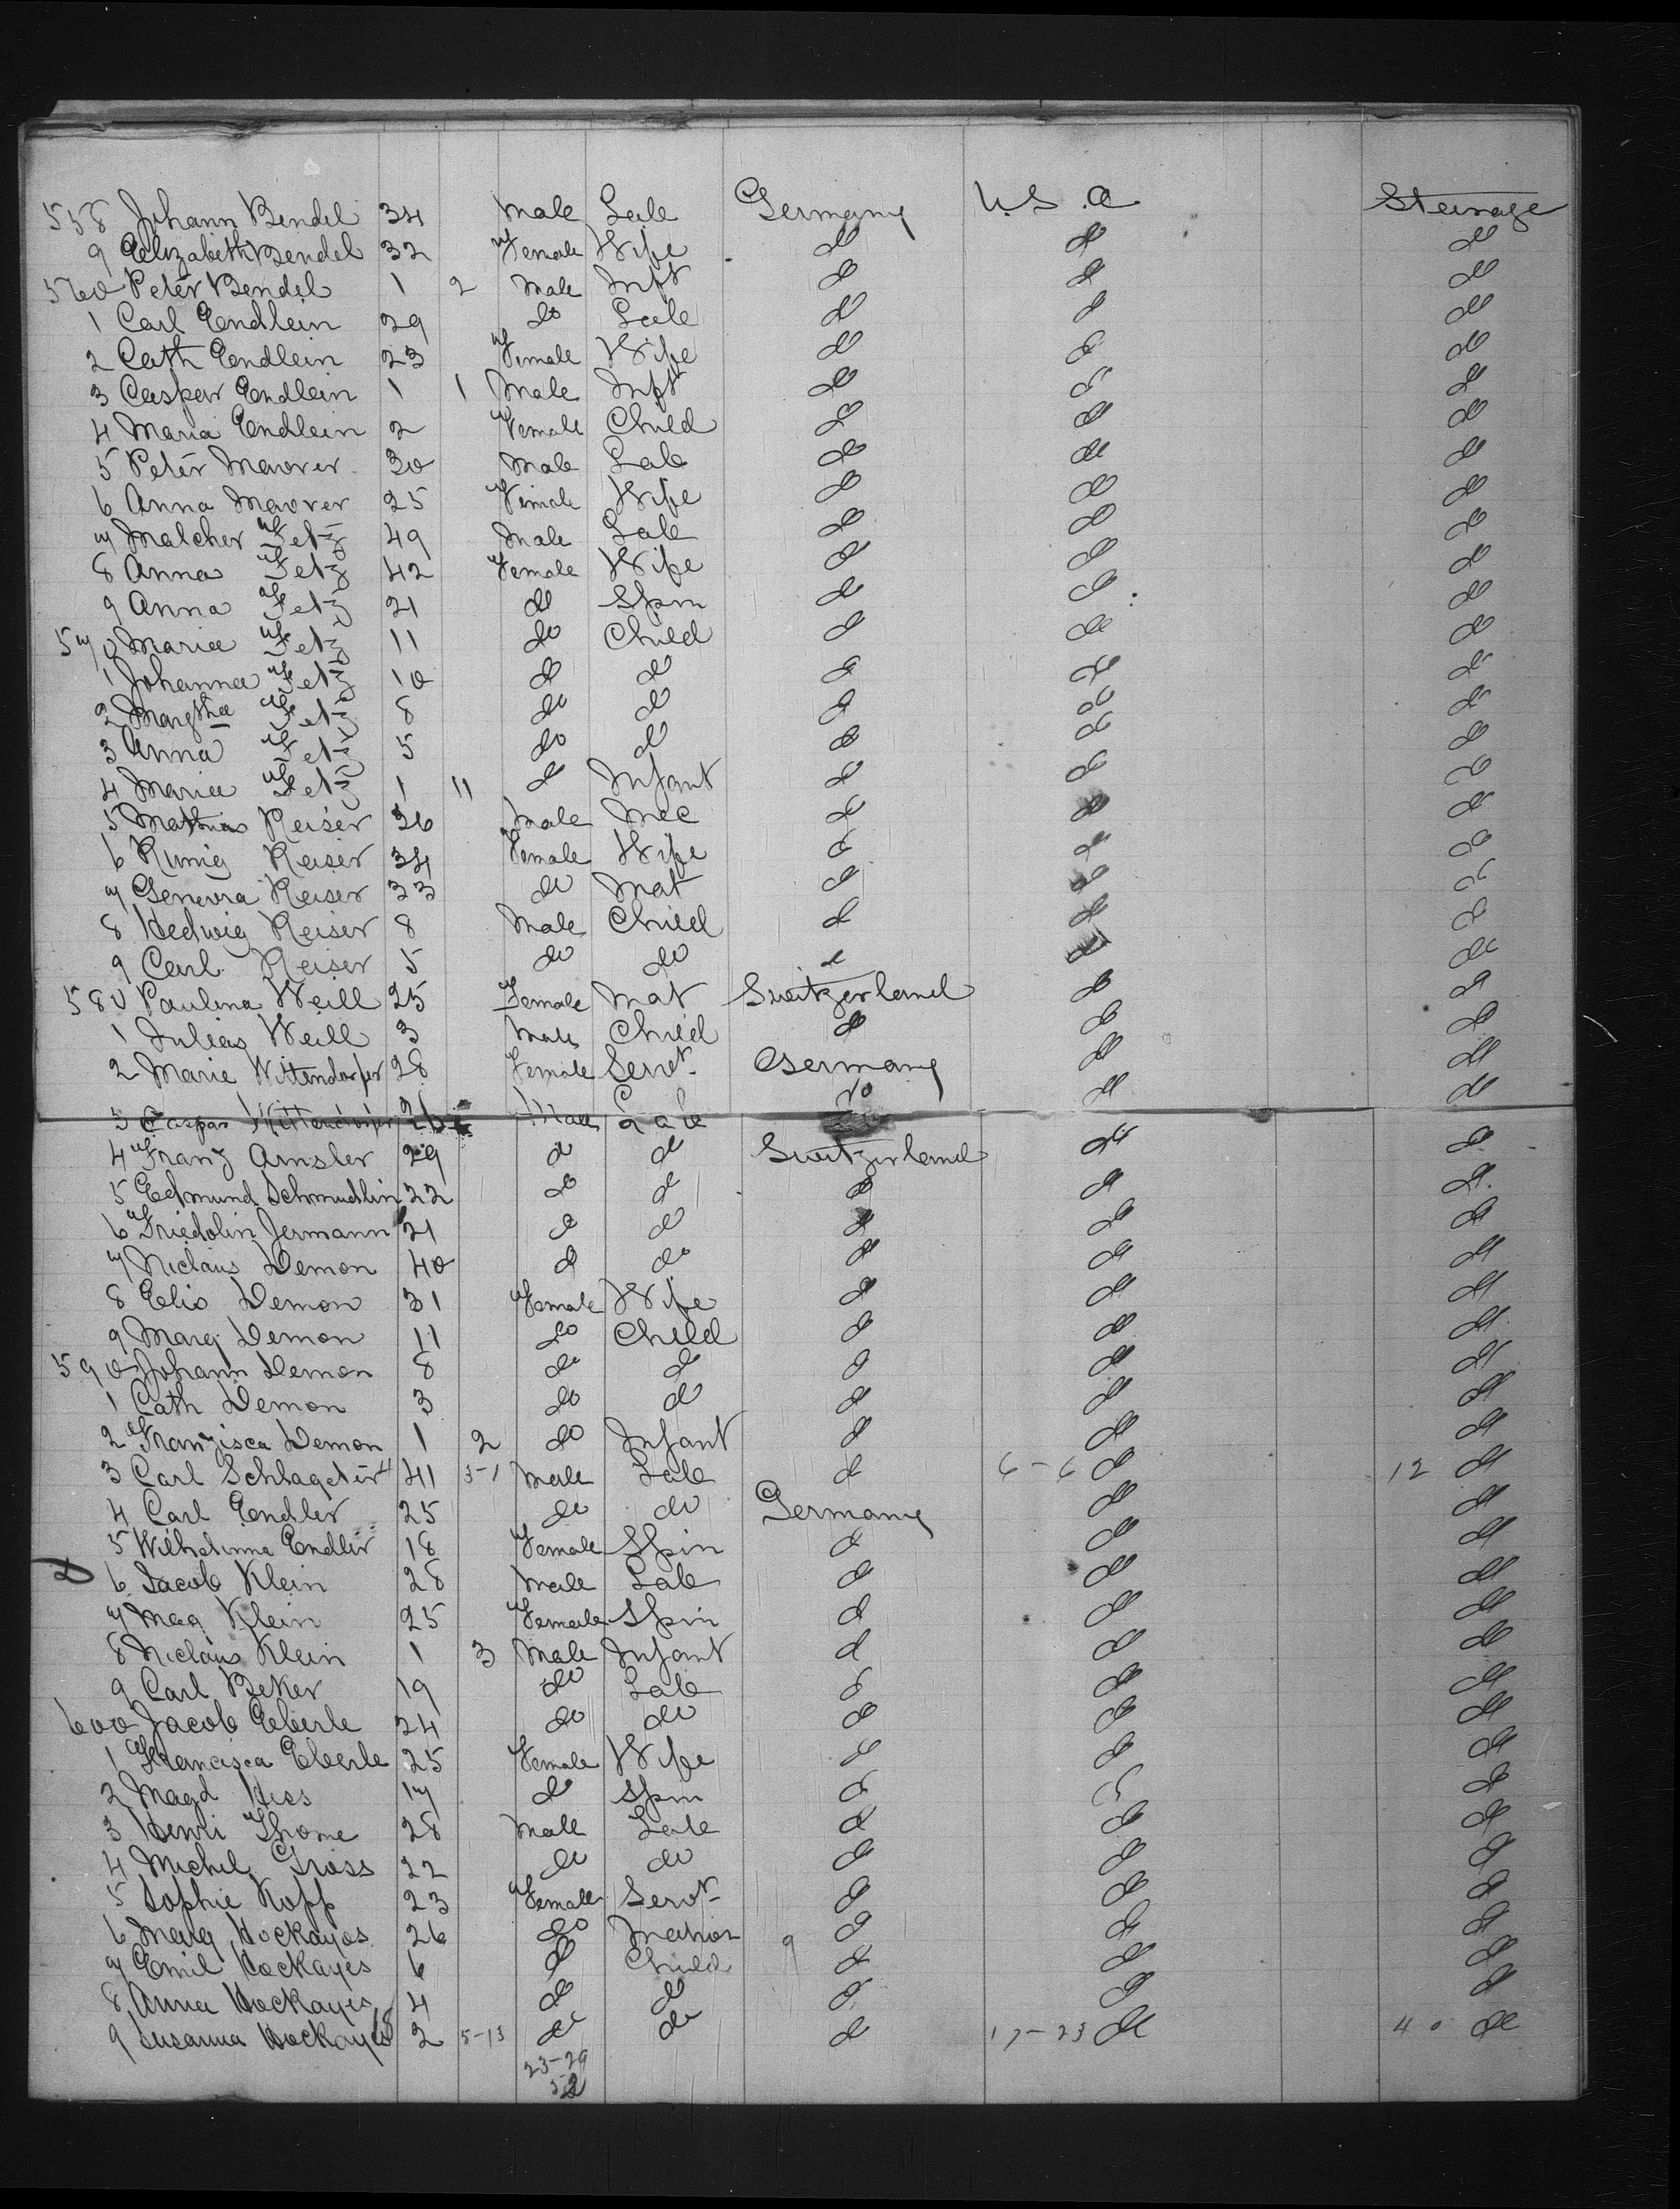 558 Johann Bendel 34 Male Lab Germany U.S.A Steerage
9 Elizabeth Bendel 32 Female Wife do do do
560 Peter Bendel 1 2 Male Inft do do do
1 Carl Endlein 29 do Lab do do do
2 Cath Endlein 23 Female Wife do do do
3 Caspar Endlein 1 1 Male Inft do do do
4 Maria Endlein 2 Female Child do do do
5 Peter Maurer 30 Male Lab do do do
6 Anna Maurer 25 Female Wife do do do
7 Malcher Fetz 49 Male Lab do do do
8 Anna Fetz 42 Female Wife do do do
9 Anna Fetz 21 do Spin do do do
570 Maria Fetz 11 do Child do do do
1 Johanna Fetz 10 do do do do do
2 Margtha Fetz 8 do do do do do
3 Anna Fetz 5 do do do do do
4 Maria Fetz 1 11 do Infant do do do
5 Mathias Reiser 36 Male Mec do do do
6 Kunig Reiser 34 Female Wife do do do
7 Genevra Reiser 33 do Mat do do do
8 Hedwig Reiser 8 Male Child do do do
9 Carl Reiser 5 do do do do do
580 Paulina Weill 25 Female Mat Switzerland do do
1 Julias Weill 3 Male Child do do do
2 Marie Wittendorfer 28 Female Servt Germany do do
3 Caspar Wittendorfer 26 Male Lab do do do
4 Franz Amsler 29 do do Switzerland do do
5 Edmund Schmudlin 22 do do do do do
6 Friedolin Jermann 21 do do do do do
7 Niclaus Demon 40 do do do do do
8 Elis Demon 31 Female Wife do do do
9 Marg Demon 11 do Child do do do
590 Johann Demon 8 do do do do do
1 Cath Demon 3 do do do do do
2 Franzisca Demon 1 2 do Infant do do do
3 Carl Schlageter 41 5-1 Male Lab do 6-6 do 12 do
4 Carl Endler 25 do do Germany do do
5 Wilhelmina Endler 18 Female Spin do do do
6 Jacob Klein 28 Male Lab do do do
7 Mag Klein 25 Female Spin do do do
8 Niclaus Klein 1 3 Male Infant do do do
9 Carl Beker 19 do Lab do do do
600 Jacob Eberle 24 do do do do do
1 Francisca Eberle 25 Female Wife do do do
2 Magd Hess 17 do Spin do do do
3 Henri Thome 28 Male Lab do do do
4 Michel Gross 22 do do do do do
5 Sophie Kopp 23 Female Servt do do do
6 Marg Hockayes 26 do Matron do do do
7 Emil Hockayes 6 do Child 9 do do do
8 Anna Hockayes 4 do do do do do
9 Susanna Hockayes 2 5-13 do do do 17-23 do 40 do
23-29